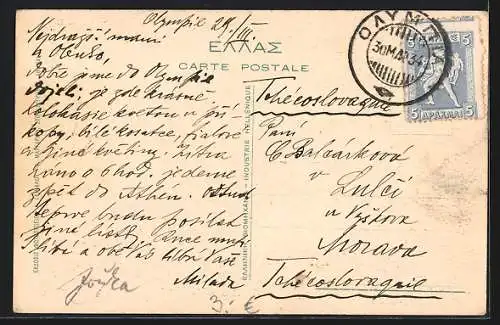 Olympie 29./III.
Nejdražší mami
a Oleńko,
dobře jsme do Olympie
dojeli, je zde krásně
kolokasie kvetou u pří-
kopy, bílé kosatce, fialové
a jiné květiny. Zítra
ráno o 6 hod. jedeme
zpět do Athén.
Teprve budu posílat
jiné lístky.
líbá a obě Vás líbá Vaše
Milada
Joška
ΕΛΛΑΣ
CARTE POSTALE
ΟΛΥΜΠΙΑ
30 ΜΑΡ 34
5 ΔΡΑΧΜΑΙ 5
ΕΛΛΗΝΙΚΗ ΒΙΟΜΗΧΑΝΙΑ - INDUSTRIE HELLÉNIQUE
Tchécoslovaquie
Paní
C. Balcarková
v Lulči
u Vyškova
Morava
Tchécoslovaquie
3.- €